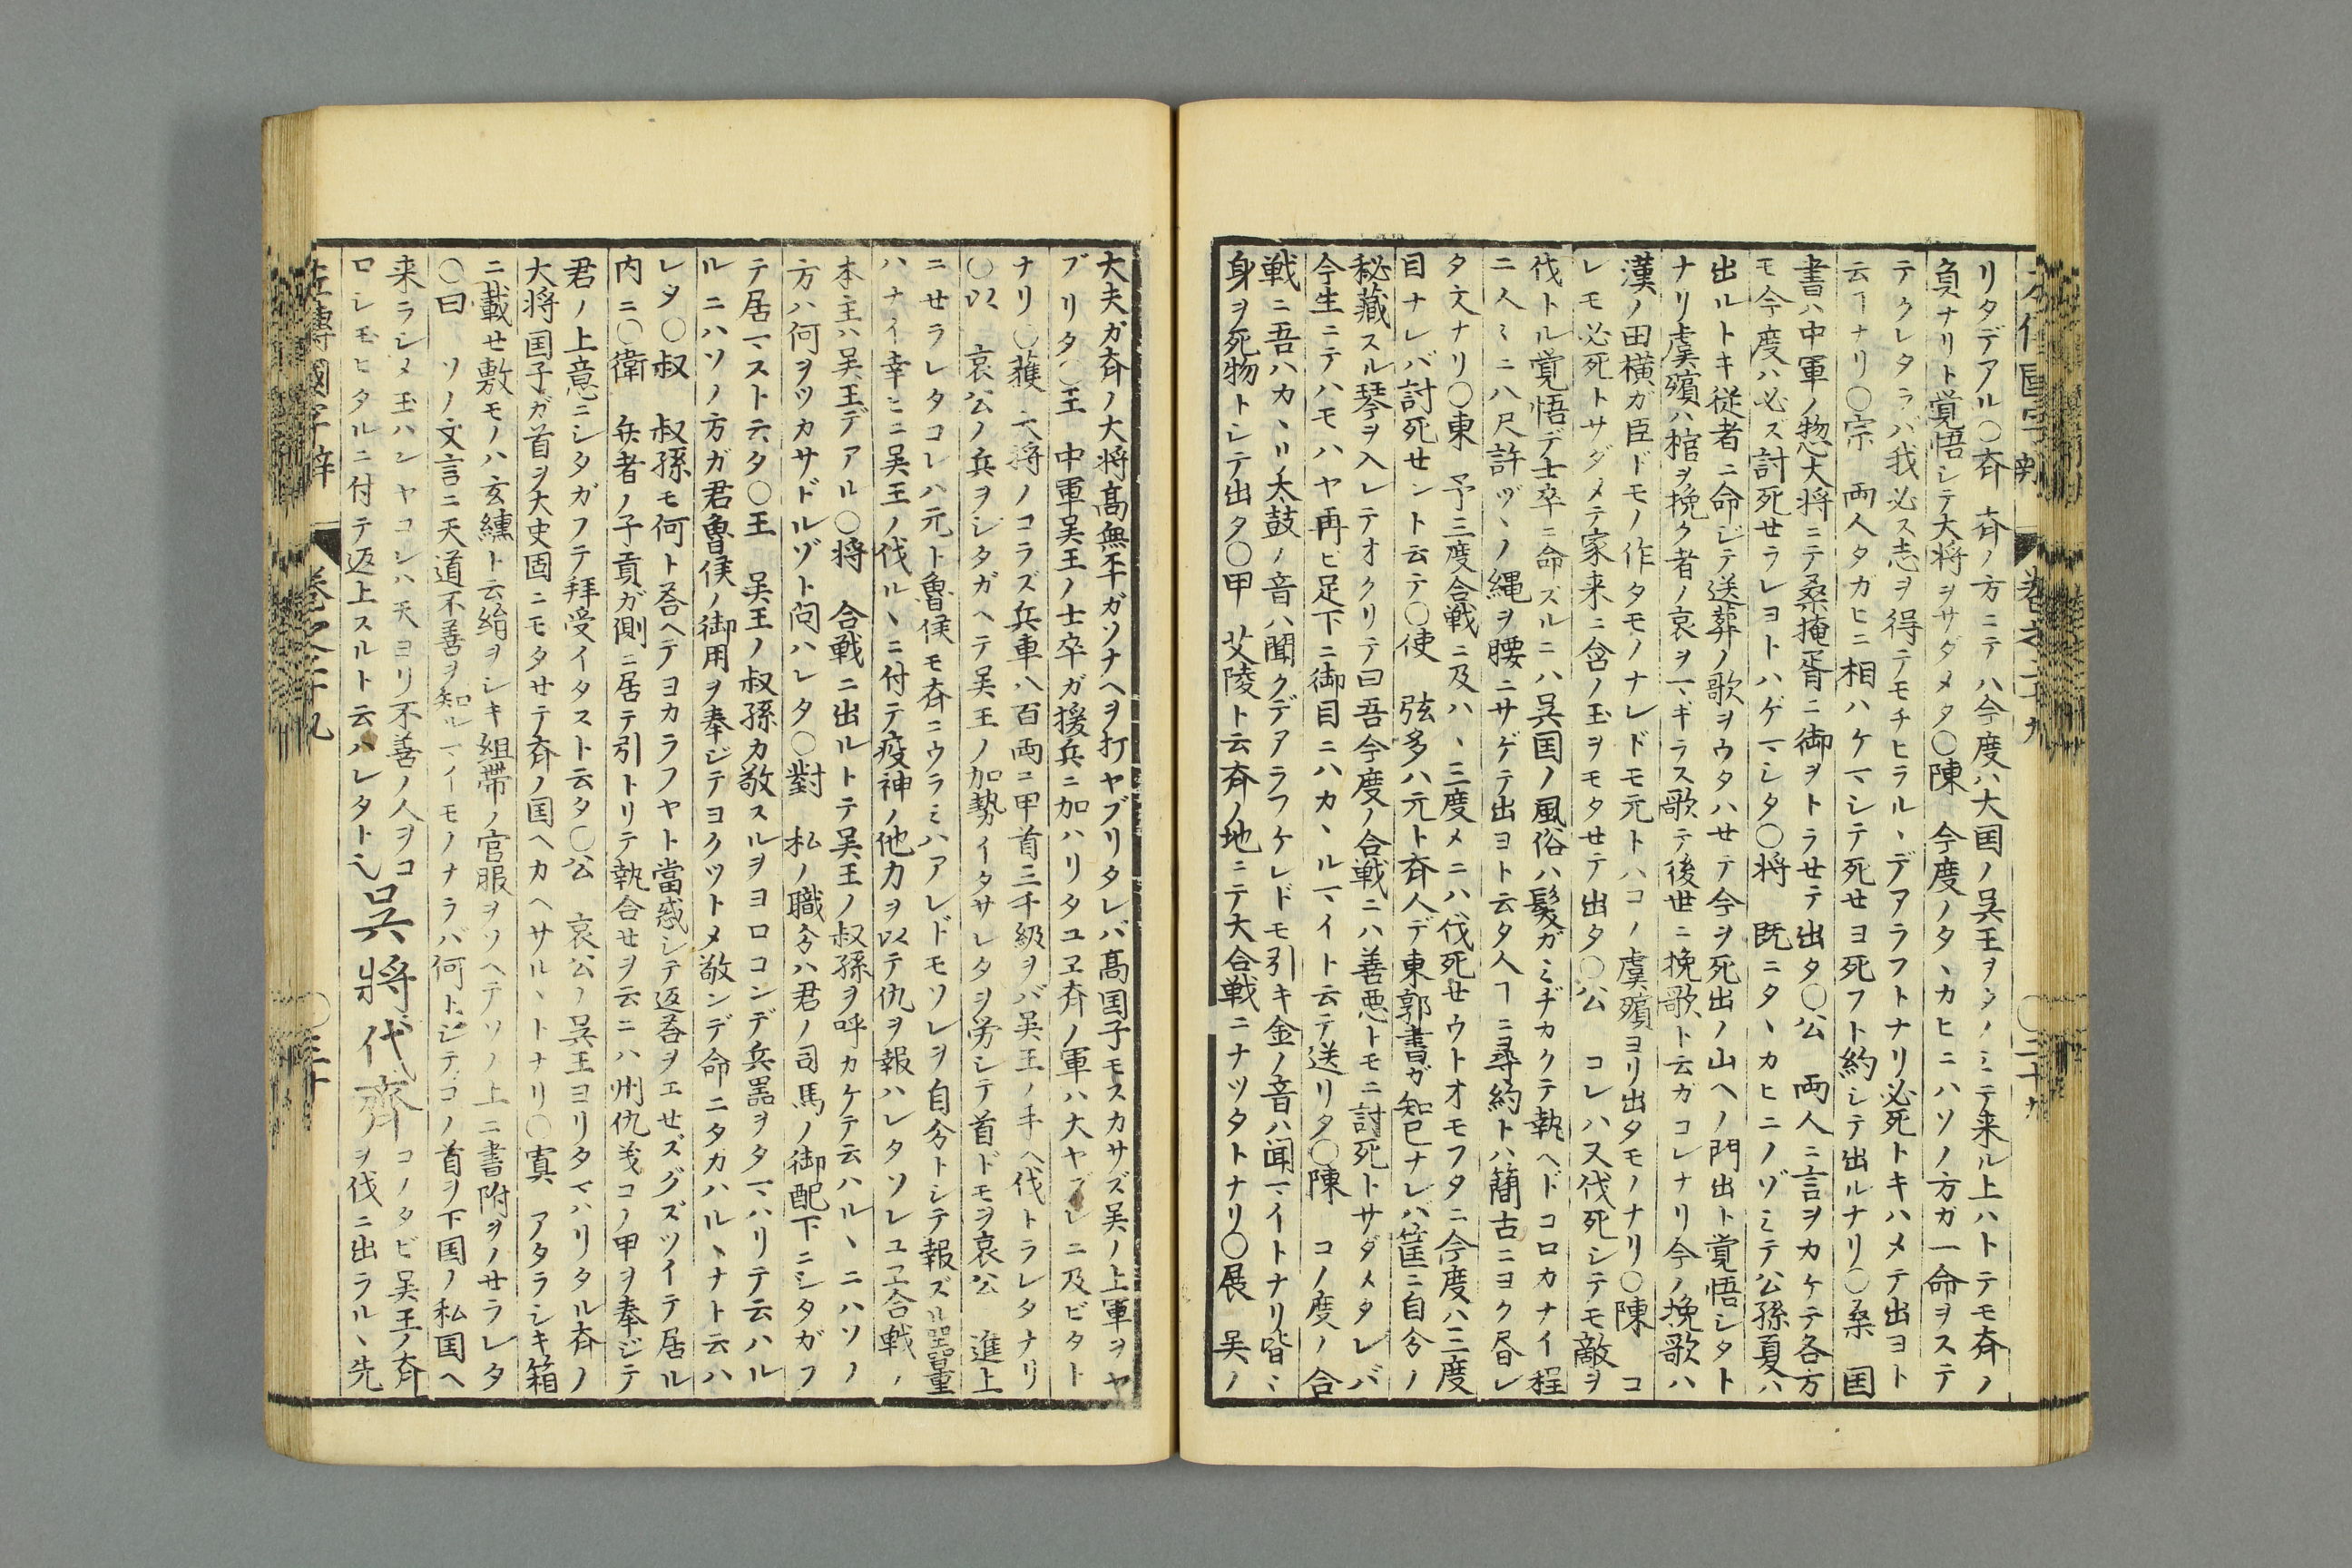 リタデアル〇斉　斉ノ方ニテハ今度ハ大国ノ呉王ヲシノミテ来ル上ハトテモ斉ノ
負ナリト覚悟シテ大将ヲサダメタ〇陳　今度ノタヽカヒニハソノ方ガ一命ヲステ
テクレタラハ我必ス志ヲ得テモチヒラルヽデアラフトナリ必死トキハメテ出ヨト
云ヿナリ〇宗　両人タカヒニ相ハケマシテ死セヨ死フト約シテ出ルナリ〇桑　国
書ハ中軍ノ惣大将ニテ桑掩胥ニ御ヲトラセテ出タ〇公　両人ニ言ヲカケテ各方
モ今度ハ必ズ討死セラレヨトハゲマシタ〇将　既ニタヽカヒニノゾミテ公孫夏ハ
出ルトキ従者ニ命ジテ送葬ノ歌ヲウタハセテ今ヲ死出ノ山ヘノ門出ト覚悟シタト
ナリ虞殯ハ棺ヲ挽ク者ノ哀ヲマギラス歌テ後世ニ挽歌ト云ガコレナリ今ノ挽歌ハ
漢ノ田横ガ臣ドモノ作タモノナレドモ元トハコノ虞殯ヨリ出タモノナリ〇陳　コ
レモ必死トサダメテ家来ニ含ノ玉ヲモタセテ出タ〇公　コレハ又伐死シテモ敵ヲ
伐トル覚悟デ士卒ニ命ズルニハ呉国ノ風俗ハ髪ガミヂカクテ執ヘドコロカナイ程
ニ人〻ニ八尺許ヅヽノ縄ヲ腰ニサゲテ出ヨト云タ人ヿニ尋約トハ簡古ニヨク昼レ
タ文ナリ〇東　予三度合戦ニ及ハヽ三度メニハ伐死セウトオモフタニ今度ハ三度
目ナレバ討死セント云テ〇使　弦多ハ元ト斉人デ東郭書ガ知己ナレハ筐ニ自分ノ
秘蔵スル琴ヲ入レテオクリテ曰吾今度ノ合戦ニハ善悪トモニ討死トサダメタレバ
今生ニテハモハヤ再ヒ足下ニ御目ニハカヽルマイト云テ送リタ〇陳　コノ度ノ合
戦ニ吾ハカヽリ大鼓ノ音ハ聞クデアラフケレドモ引キ金ノ音ハ聞マイトナリ皆〻
身ヲ死物トシテ出タ〇甲　艾陵ト云斉ノ地ニテ大合戦ニナツタトナリ〇展　呉ノ
大夫ガ斉ノ大将高無平ガソナヘヲ打ヤブリタレバ高国子モスカサズ呉ノ上軍ヲヤ
ブリタ〇王　中軍呉王ノ士卒ガ援兵ニ加ハリタユヱ斉ノ軍ハ大ヤブレニ及ビタト
ナリ〇獲　六将ノコラズ兵車八百両ニ甲首三千級ヲバ呉王ノ手ヘ伐トラレタナリ
〇以　哀公ノ兵ヲシタガヘテ呉王ノ加勢イタサレタヲ労シテ首ドモヲ哀公　進上
ニセラレタコレハ元ト魯侯モ斉ニウラミハアレドモソレヲ自分トシテ報ズル器量
ハナイ幸ヒニ呉王ノ伐ルヽニ付テ疫神ノ他力ヲ以テ仇ヲ報ハレタソレユヱ合戦ノ
本主ハ呉王デアル〇将　合戦ニ出ルトテ呉王ノ叔孫ヲ呼カケテ云ハルヽニハソノ
方ハ何ヲツカサドルゾト問ハレタ〇對　私ノ職分ハ君ノ司馬ノ御配下ニシタガフ
テ居マスト云タ〇王　呉王ノ叔孫カ敬スルヲヨロコンデ兵器ヲタマハリテ云ハル
ルニハソノ方ガ君魯侯ノ御用ヲ奉ジテヨクツトメ敬ンデ命ニタカハルヽナト云ハ
レタ〇叔　叔孫モ何ト答ヘテヨカラフヤト當惑シテ返答ヲエセズグズツイテ居ル
内ニ〇衛　兵者ノ子貢ガ側ニ居テ引トリテ執合セヲ云ニハ州仇義コノ甲ヲ奉ジテ
君ノ上意ニシタガフテ拜受イタスト云タ〇公　哀公ノ呉王ヨリタマハリタル斉ノ
大将国子ガ首ヲ大史固ニモタセテ斉ノ国ヘカヘサルヽトナリ〇寘　アタラシキ箱
ニ載セ敷モノハ玄纁ト云絹ヲシキ組帶ノ官服ヲソヘテソノ上ニ書附ヲノセラレタ
〇曰　ソノ文言ニ天道不善ヲ知ルマイモノナラバ何トシテコノ首ヲ下国ノ私国ヘ
来ラシメ玉ハンヤコレハ天ヨリ不善ノ人ヲコ
ロシモヒタルニ付テ返上スルト云ハレタト也呉將伐齊コノタビ呉王ノ斉
ヲ伐ニ出ラルヽ先
左傳國字辯　巻之二十九　〇三十